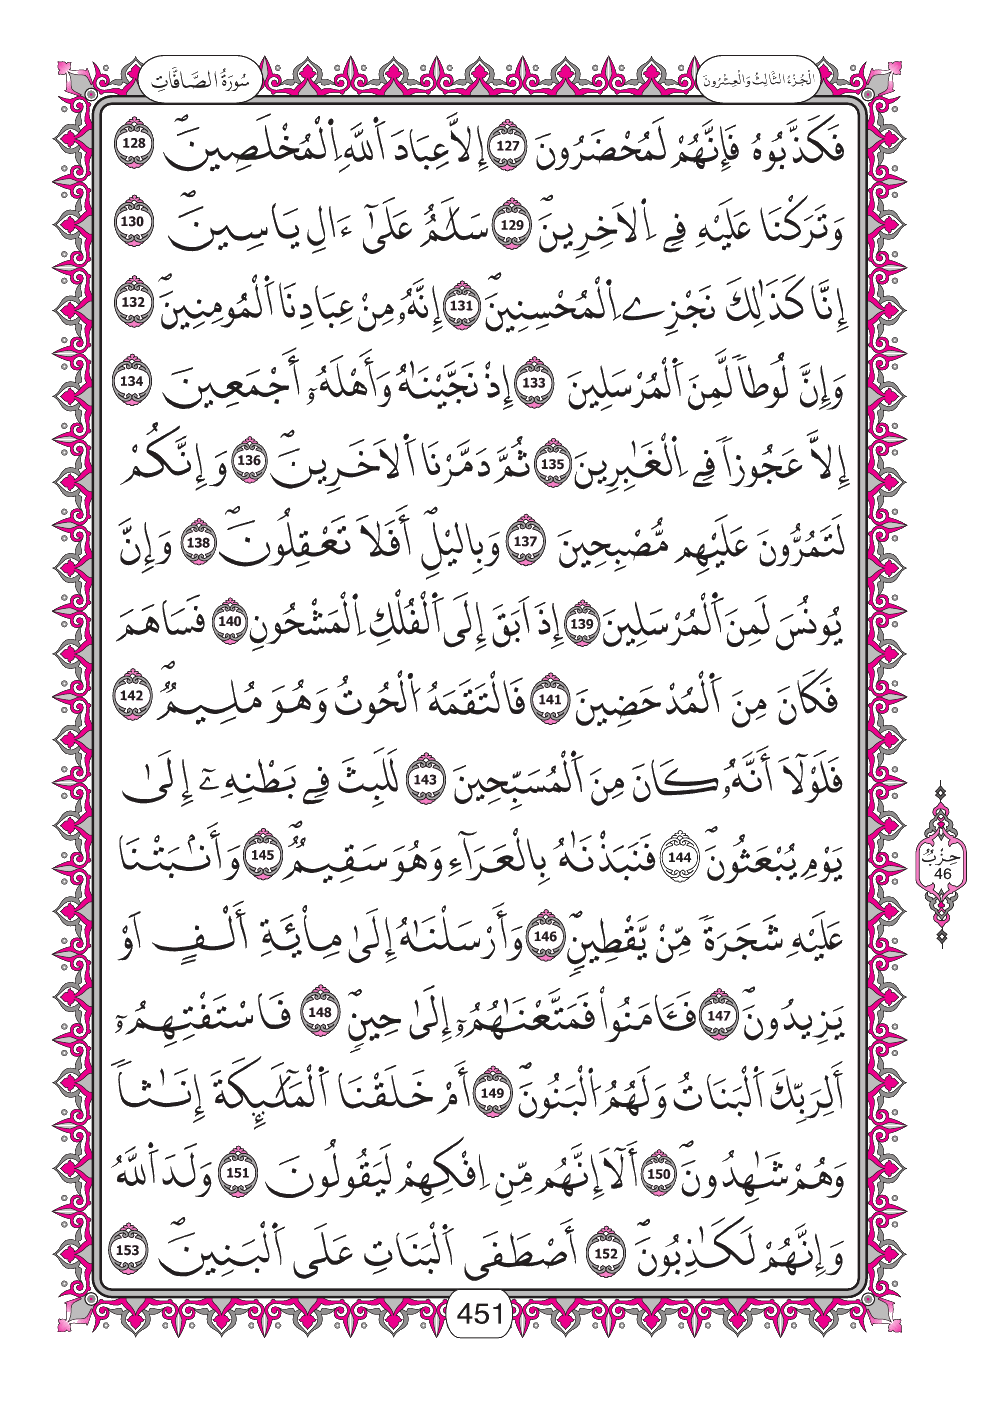 سُورَةُ الصَّافَّاتِ
الْجُزْءُ الثَّالِثُ وَالْعِشْرُونَ
فَكَذَّبُوهُ فَإِنَّهُمْ لَمُحْضَرُونَ 127 إِلَّا عِبَادَ اَللَّهِ اِلْمُخْلَصِينَ 128
وَتَرَكْنَا عَلَيْهِ فِے اِلَاخِرِينَ 129 سَلَٰمٌ عَلَىٰٓ ءَالِ يَاسِينَ 130
إِنَّا كَذَٰلِكَ نَجْزِے اِلْمُحْسِنِينَ 131 إِنَّهُۥ مِنْ عِبَادِنَا اَلْمُومِنِينَ 132
وَإِنَّ لُوطاٗ لَّمِنَ اَلْمُرْسَلِينَ 133 إِذْ نَجَّيْنَٰهُ وَأَهْلَهُۥٓ أَجْمَعِينَ 134
إِلَّا عَجُوزاٗ فِے اِلْغَٰبِرِينَ 135 ثُمَّ دَمَّرْنَا اَلَاخَرِينَ 136 وَإِنَّكُمْ
لَتَمُرُّونَ عَلَيْهِم مُّصْبِحِينَ 137 وَبِاليْلِ أَفَلَا تَعْقِلُونَ 138 وَإِنَّ
يُونُسَ لَمِنَ اَلْمُرْسَلِينَ 139 إِذَ اَبَقَ إِلَى اَلْفُلْكِ اِلْمَشْحُونِ 140 فَسَاهَمَ
فَكَانَ مِنَ اَلْمُدْحَضِينَ 141 فَالْتَقَمَهُ اُلْحُوتُ وَهُوَ مُلِيمٌ 142
فَلَوْلَآ أَنَّهُۥ كَانَ مِنَ اَلْمُسَبِّحِينَ 143 لَلَبِثَ فِے بَطْنِهِۦٓ إِلَىٰ
يَوْمِ يُبْعَثُونَ 144 فَنَبَذْنَٰهُ بِالْعَرَآءِ وَهُوَ سَقِيمٌ 145 وَأَنۢبَتْنَا
عَلَيْهِ شَجَرَةٗ مِّنْ يَّقْطِينٍ 146 وَأَرْسَلْنَٰهُ إِلَىٰ مِاْئَةِ أَلْفٍ اَوْ
يَزِيدُونَ 147 فَـَٔامَنُواْ فَمَتَّعْنَٰهُمُۥٓ إِلَىٰ حِينٍ 148 فَاسْتَفْتِهِمُۥٓ
أَلِرَبِّكَ اَلْبَنَاتُ وَلَهُمُ اُلْبَنُونَ 149 أَمْ خَلَقْنَا اَلْمَلَٰٓئِكَةَ إِنَٰثاٗ
وَهُمْ شَٰهِدُونَ 150 أَلَآ إِنَّهُم مِّنِ اِفْكِهِمْ لَيَقُولُونَ 151 وَلَدَ اَللَّهُ
وَإِنَّهُمْ لَكَٰذِبُونَ 152 أَصْطَفَى اَلْبَنَاتِ عَلَى اَلْبَنِينَ 153
حِزْبُ
46
451